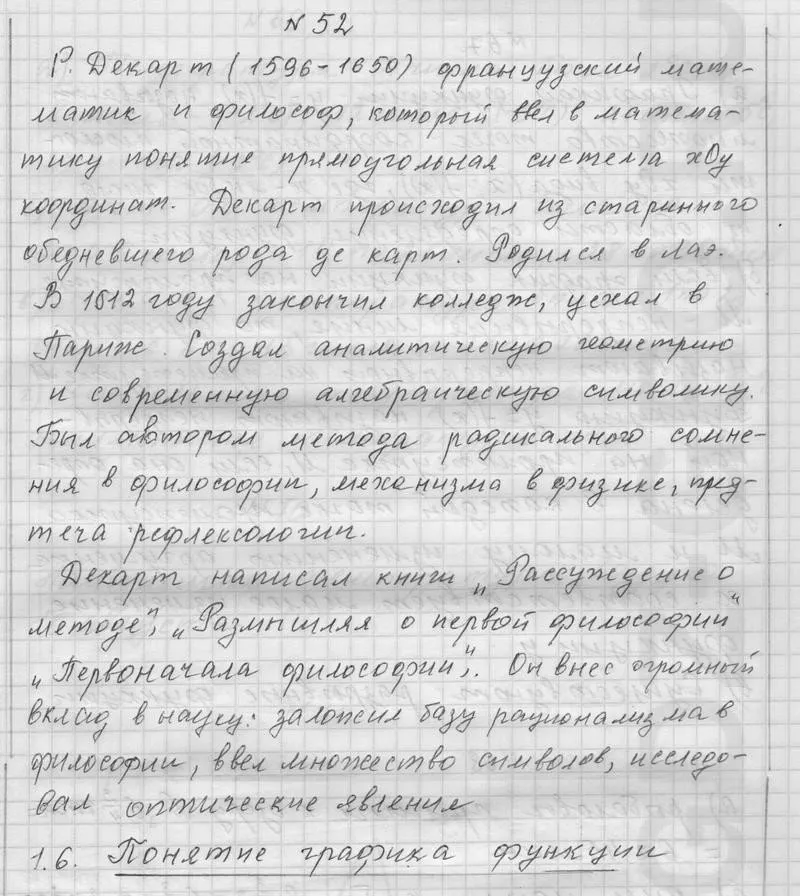 № 52
Р. Декарт (1596-1650) французский мате-
матик и философ, который ввел в матема-
тику понятие прямоугольная система xOy
координат. Декарт происходил из старинного
обедневшего рода де карт. Родился в Лаэ.
В 1612 году закончил колледж, уехал в
Париж. Создал аналитическую геометрию
и современную алгебраическую символику.
Был автором метода радикального сомне-
ния в философии, механизма в физике, пред-
теча рефлексологии.
Декарт написал книги „Рассуждение о
методе", „Размышляя о первой философии"
„Первоначала философии". Он внес огромный
вклад в науку: заложил базу рационализма в
философии, ввел множество символов, исследо-
вал оптические явления
1.6. Понятие графика функции